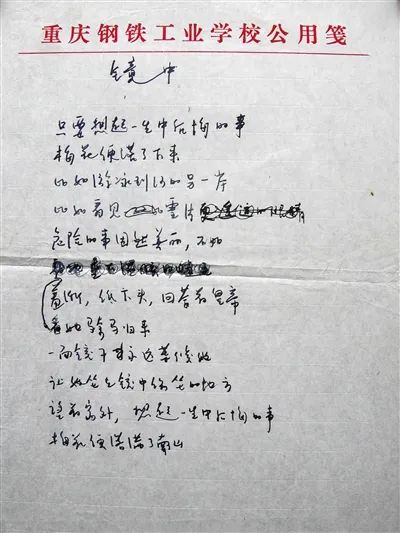 重庆钢铁工业学校公用笺
镜中
只要想起一生中后悔的事
梅花便落了下来
比如游泳到河的另一岸
比如看见 的雪片
危险的事固然美丽，不如
羞惭，低下头，回答着皇帝
看她骑马归来
一面镜子永远等候她
让她坐到镜中常坐的地方
望着窗外，想起一生中后悔的事
梅花便落满了南山